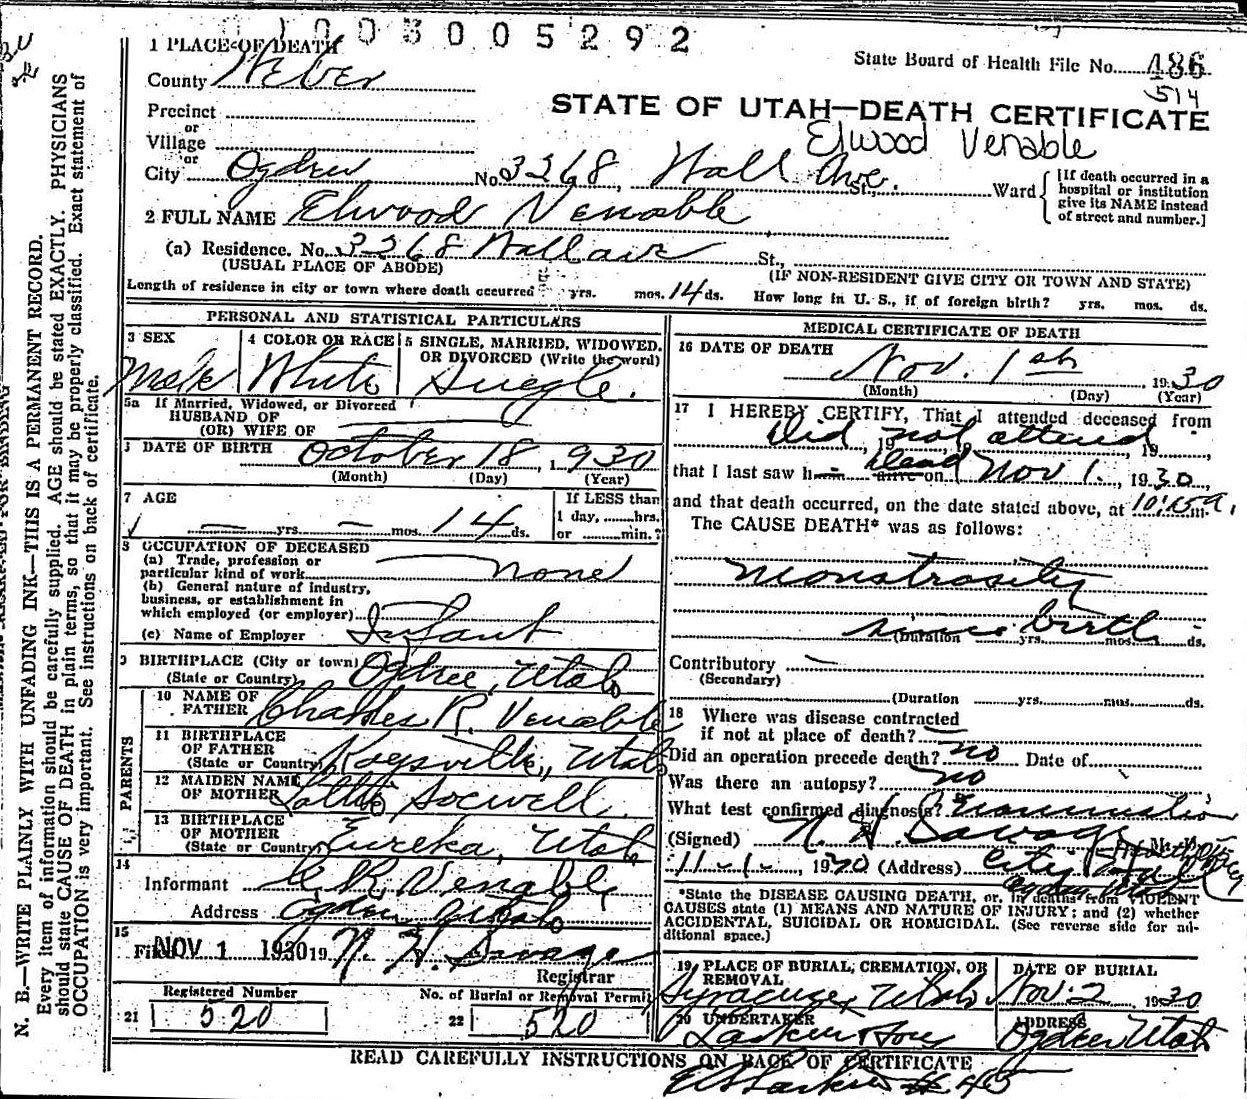 1003005292
1 PLACE OF DEATH
County Weber
State Board of Health File No. 486
514
Precinct
or
Village
or
STATE OF UTAH—DEATH CERTIFICATE
Elwood Venable
City Ogden No. 3268, Wall Ave. St., Ward [If death occurred in a hospital or institution give its NAME instead of street and number.]
2 FULL NAME Elwood Venable
(a) Residence. No. 3268 Wall ave St.,
(USUAL PLACE OF ABODE) (IF NON-RESIDENT GIVE CITY OR TOWN AND STATE)
Length of residence in city or town where death occurred yrs. mos. 14 ds. How long in U. S., if of foreign birth? yrs. mos. ds.
PERSONAL AND STATISTICAL PARTICULARS
3 SEX
Male
4 COLOR OR RACE
White
5 SINGLE, MARRIED, WIDOWED. OR DIVORCED (Write the word)
Single.
5a If Married, Widowed, or Divorced
HUSBAND OF
(OR) WIFE OF
DATE OF BIRTH October 18, 1930
(Month) (Day) (Year)
7 AGE
— yrs. — mos. 14 ds.
If LESS than
1 day, hrs.
or min.?
8 OCCUPATION OF DECEASED
(a) Trade, profession or
particular kind of work none
(b) General nature of industry,
business, or establishment in
which employed (or employer)
Infant
(c) Name of Employer
9 BIRTHPLACE (City or town) Ogden, Utah
(State or Country)
PARENTS
10 NAME OF
FATHER Charles R. Venable
11 BIRTHPLACE
OF FATHER
(State or Country) Kaysville, Utah
12 MAIDEN NAME
OF MOTHER Socwell
13 BIRTHPLACE
OF MOTHER
(State or Country) Eureka, Utah
14
Informant C. R. Venable
Address Ogden Utah
15
Filed NOV 1 1930 19 N. H. Savage
Registrar
Registered Number
21 520
No. of Burial or Removal Permit
22 520
MEDICAL CERTIFICATE OF DEATH
16 DATE OF DEATH
Nov. 1st 1930
(Month) (Day) (Year)
17 I HEREBY CERTIFY, That I attended deceased from
Did, 19 not, attend, 19
that I last saw h— alive dead on Nov 1., 1930,
and that death occurred, on the date stated above, at 10:15 a.m.
The CAUSE DEATH* was as follows:
Monstrosity
since birth
(Duration yrs. mos. ds.
Contributory —
(Secondary)
(Duration yrs. mos. ds.
18 Where was disease contracted
if not at place of death?
Did an operation precede death? no Date of
Was there an autopsy? no
What test confirmed diagnosis? Examination
(Signed) N. H. Savage M. D.
11-1-, 1930 (Address) City Hall
Ogden Utah
*State the DISEASE CAUSING DEATH, or, in deaths from VIOLENT
CAUSES state (1) MEANS AND NATURE OF INJURY; and (2) whether
ACCIDENTAL, SUICIDAL OR HOMICIDAL. (See reverse side for ad-
ditional space.)
19 PLACE OF BURIAL, CREMATION, OR
REMOVAL
Syracuse, Utah
DATE OF BURIAL
Nov. 2, 1930
20 UNDERTAKER
Larkin & Sons
ADDRESS
Ogden Utah
READ CAREFULLY INSTRUCTIONS ON BACK OF CERTIFICATE
Larkin # 45
N. B.—WRITE PLAINLY WITH UNFADING INK—THIS IS A PERMANENT RECORD.
Every item of information should be carefully supplied. AGE should be stated EXACTLY. PHYSICIANS
should state CAUSE OF DEATH in plain terms, so that it may be properly classified. Exact statement of
OCCUPATION is very important. See instructions on back of certificate.